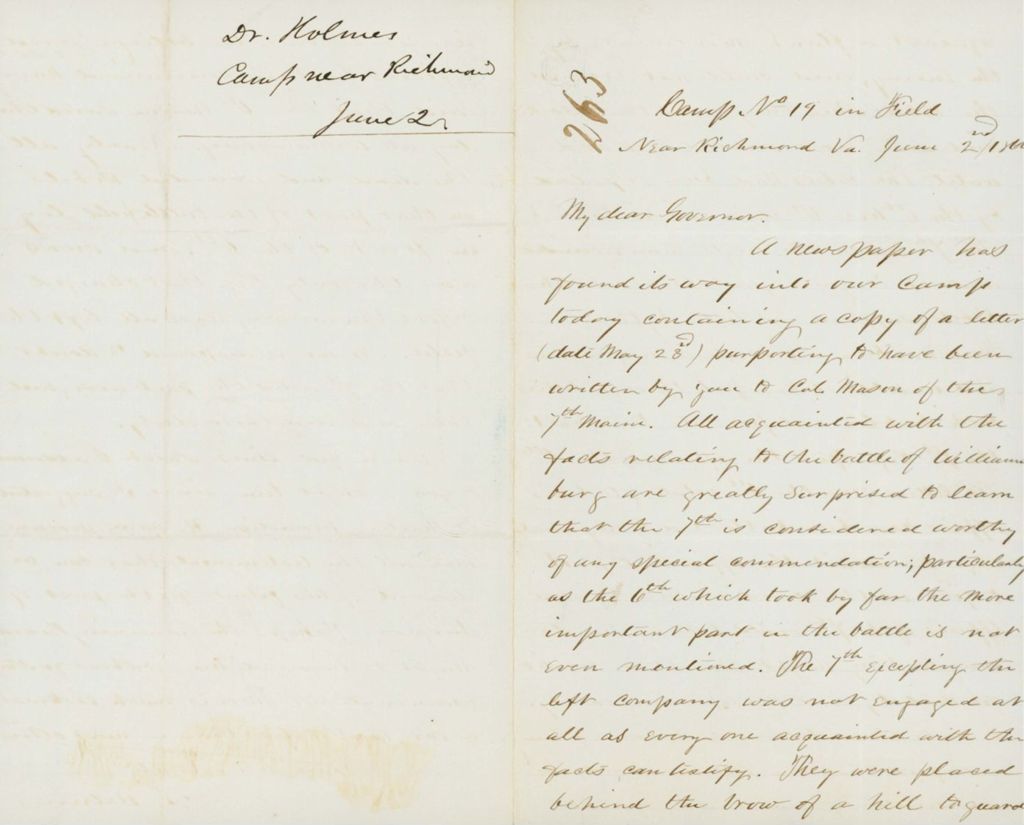 Dr. Holmes
Camp near Richmond
June 2
263
Camp No 19 in Field
Near Richmond Va. June 2nd/
My dear Governor.
A newspaper has
found its way into our Camp
today containing a copy of a letter
(date May 23d) purporting to have been
written by you to Col. Mason of the
7th Maine. All acquainted with the
facts relating to the battle of Williams
burg are greatly surprised to learn
that the 7th is considered worthy
of any special commendation; particularly
as the 6th which took by far the more
important part in the battle is not
even mentioned. The 7th excepting the
left company was not engaged at
all as every one acquainted with the
facts can testify. They were placed
behind the brow of a hill to guard